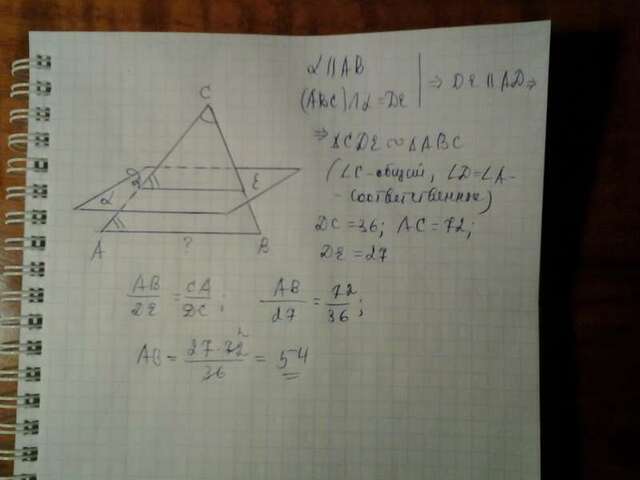 C
D
E
α
A
?
B
α || AB
(ABC) ∩ α = DE
⇒ DE || AD ⇒
⇒ ΔCDE ∾ ΔABC
(∠C - общий, ∠D = ∠A -
- соответственные)
DC = 36; AC = 72;
DE = 27
AB/DE = CA/DC; AB/27 = 72/36;
AB = 27·72/36 = 54
2